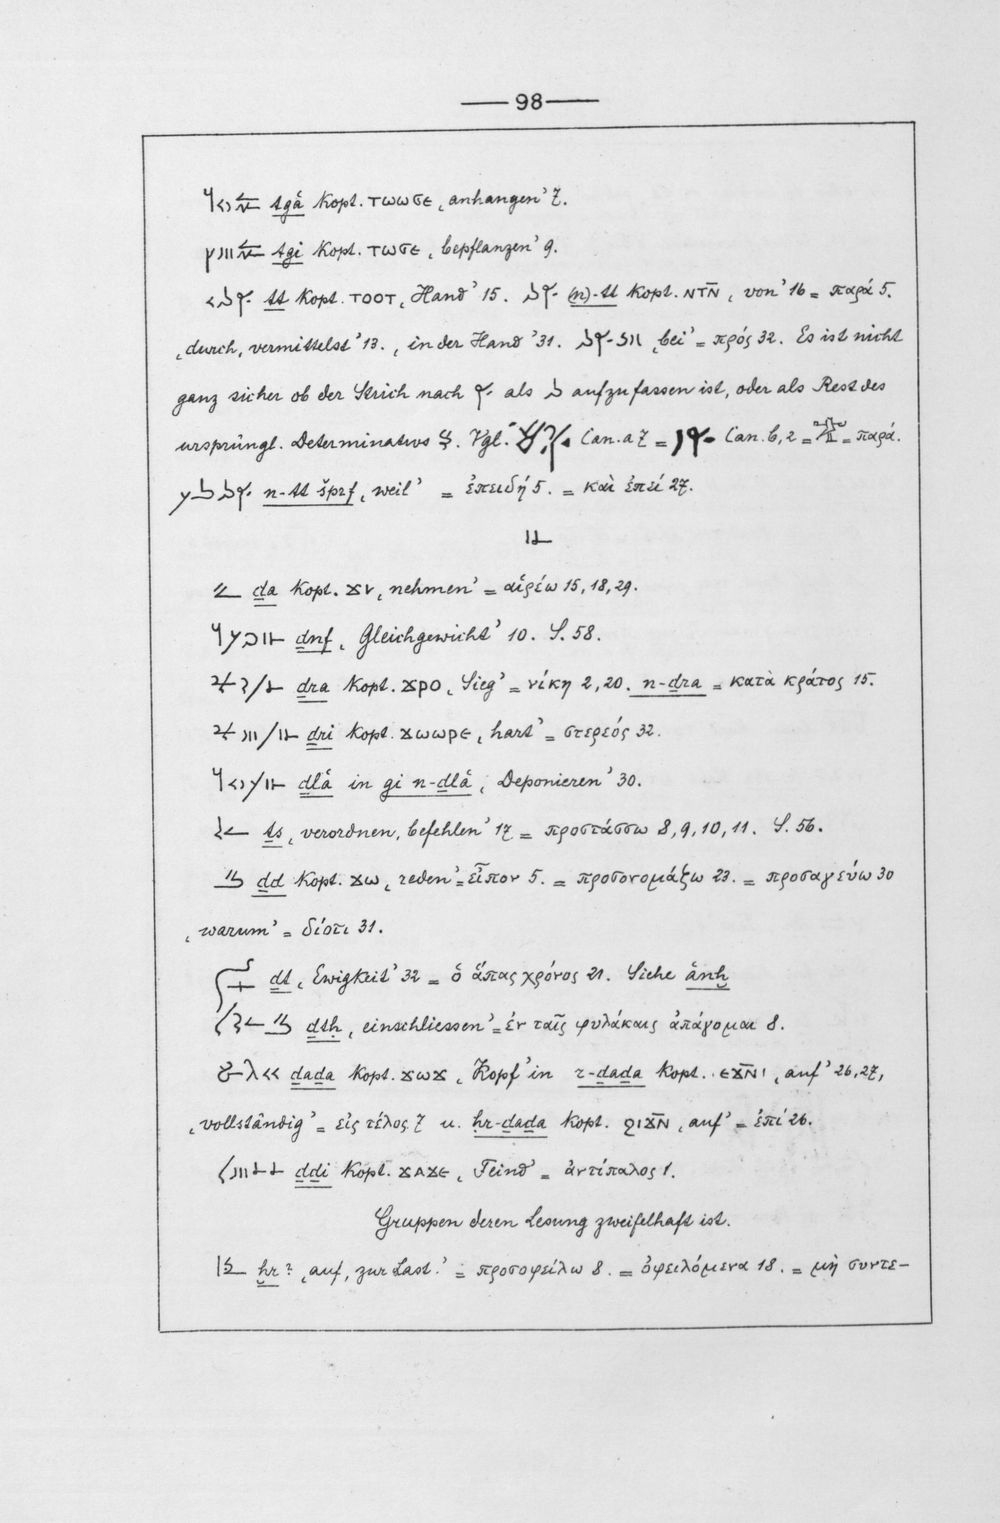 98
tgȧ Kopt. ⲧⲱⲱϭⲉ ‚anhangen’ 7.
tgi Kopt. ⲧⲱϭⲉ ‚bepflanzen’ 9.
tt Kopt. ⲧⲟⲟⲧ ‚Hand’ 15. (n)-tt Kopt. ⲛⲧⲛ̄ ‚von’ 16 = παρά 5.
‚durch, vermittelst’ 13. ‚in der Hand’ 31. ‚bei’ = πρός 32. Es ist nicht
ganz sicher ob der Strich nach als aufzufassen ist, oder als Rest des
ursprüngl. Determinativs. Vgl. Can. a 7 = Can. b, 2 = = παρά.
n-tt šprf ‚weil’ = ἐπειδή 5. = καὶ ἐπεί 27.
ḏa Kopt. ϫⲓ ‚nehmen’ = αἱρέω 15, 18, 29.
ḏnf ‚Gleichgewicht’ 10. S. 58.
ḏra Kopt. ϫⲣⲟ ‚Sieg’ = νίκη 2, 20. n-ḏra = κατὰ κράτος 15.
ḏri Kopt. ϫⲱⲱⲣⲉ ‚hart’ = στερεός 32.
ḏlȧ in gi n-ḏlȧ ‚Deponieren’ 30.
ṯs ‚verordnen, befehlen’ 17 = προστάσσω 8, 9, 10, 11. S. 56.
ḏd Kopt. ϫⲱ ‚reden’ = εἶπον 5. = προσονομάζω 23. = προσαγεύω 30
‚warum’ = διότι 31.
ḏt ‚Ewigkeit’ 32 = ὁ ἅπας χρόνος 21. Siehe ȧnḫ
ḏtḥ ‚einschliessen’ = ἐν ταῖς φυλάκαις ἀπάγομαι 8.
ḏaḏa Kopt. ϫⲱϫ ‚Kopf’ in r-ḏaḏa Kopt. ⲉϫⲛ̄ ‚auf’ 26, 27,
‚vollständig’ = εἰς τέλος 7 u. hr-ḏaḏa Kopt. ϩⲓϫⲛ̄ ‚auf’ = ἐπί 26.
ḏḏi Kopt. ϫⲁϫⲉ ‚Feind’ = ἀντίπαλος 1.
Gruppen deren Lesung zweifelhaft ist.
ḫr? ‚auf, zur Last.’ = προσοφείλω 8. = ὀφειλόμενα 18. = μὴ συντε-